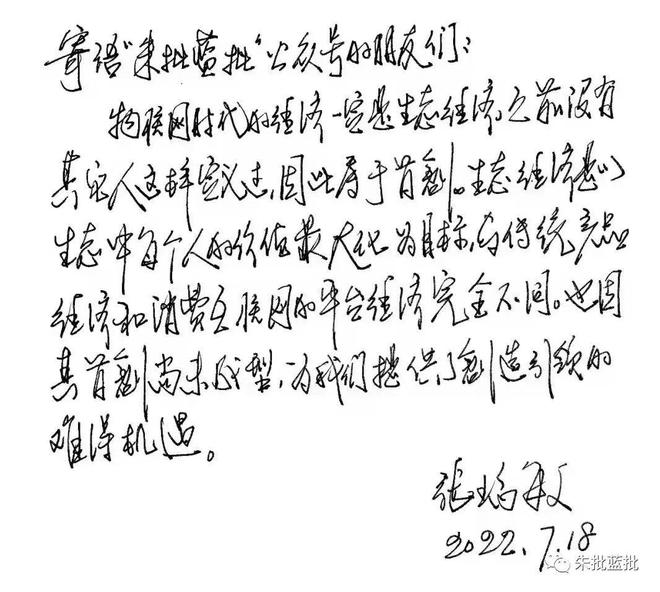 寄语“朱批蓝批”公众号的朋友们：
物联网时代的经济一定是生态经济，之前没有
其它人这样定义过，因此属于首创。生态经济是以
生态中每个人的价值最大化为目标，与传统产品
经济和消费互联网的平台经济完全不同。也因
其首创尚未成型，为我们提供了创造引领的
难得机遇。
张瑞敏
2022.7.18
朱批蓝批